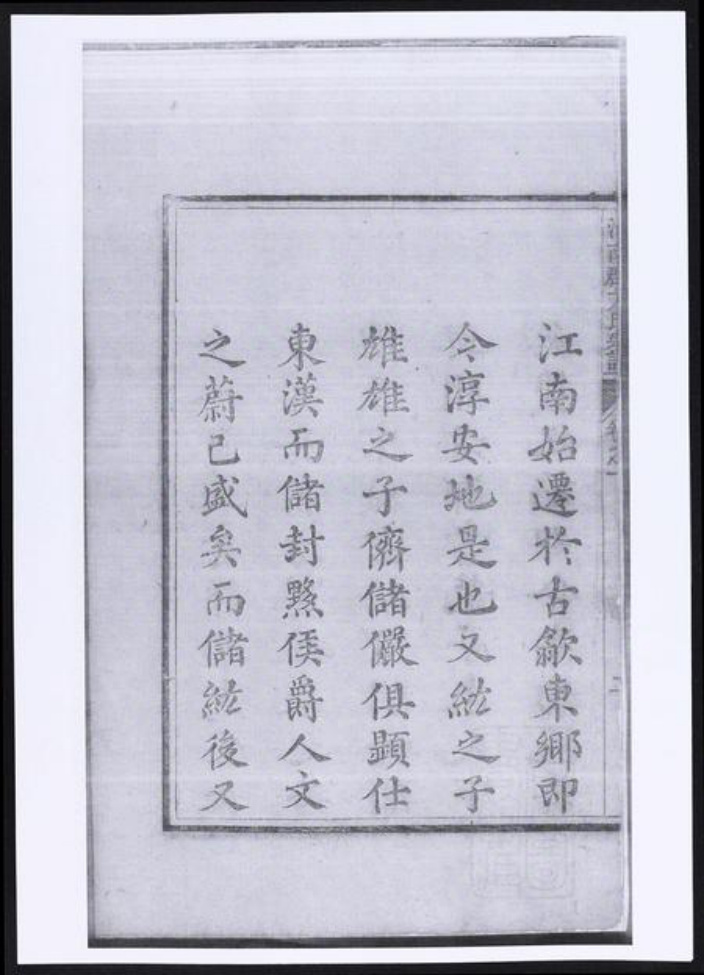 江南始遷於古歙東鄉即
今淳安地是也又紘之子
雄雄之子儕儲儼俱顯仕
東漢而儲封黟侯爵人文
之蔚已盛矣而儲紘後又